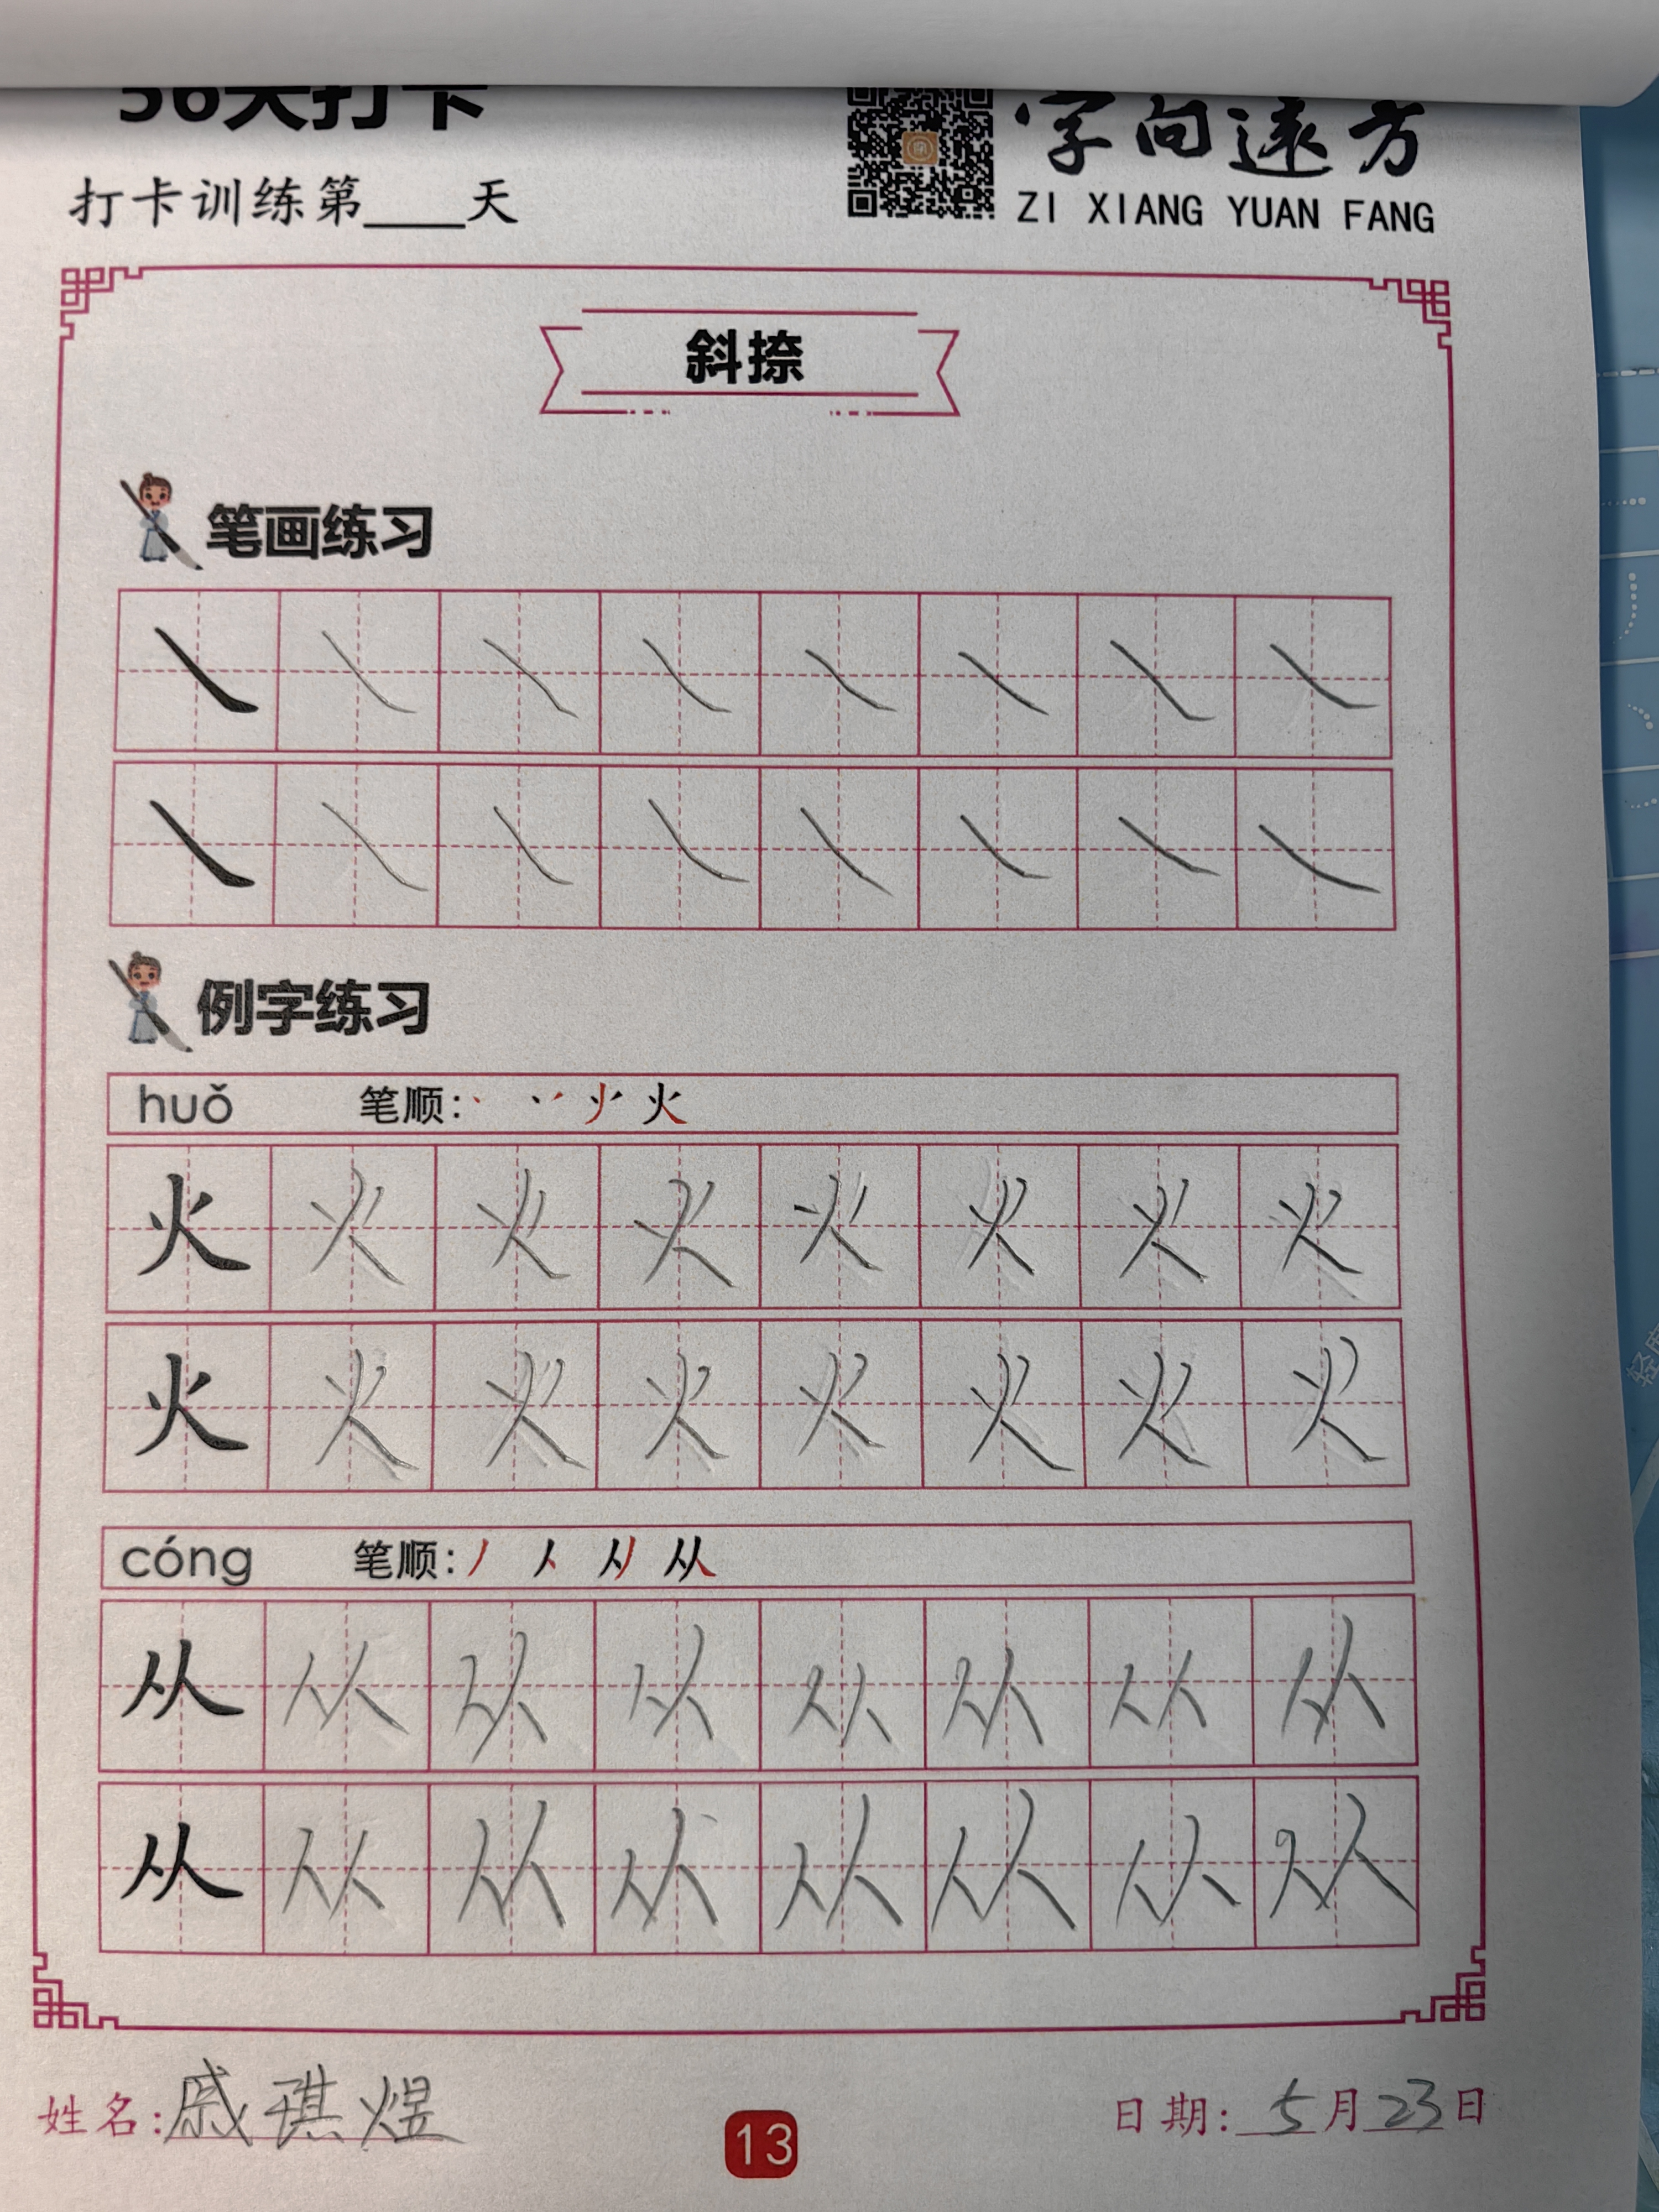 56天打卡
字向远方
打卡训练第____天
ZI XIANG YUAN FANG
斜捺
笔画练习
例字练习
huǒ 笔顺:
火 火 火 火 火 火 火 火
火 火 火 火 火 火 火 火
cóng 笔顺:
从 从 从 从 从 从 从 从
从 从 从 从 从 从 从 从
姓名:戚琪煜
日期:5月23日
13